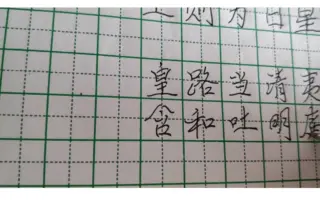 则为日星
皇路当清夷
含和吐明